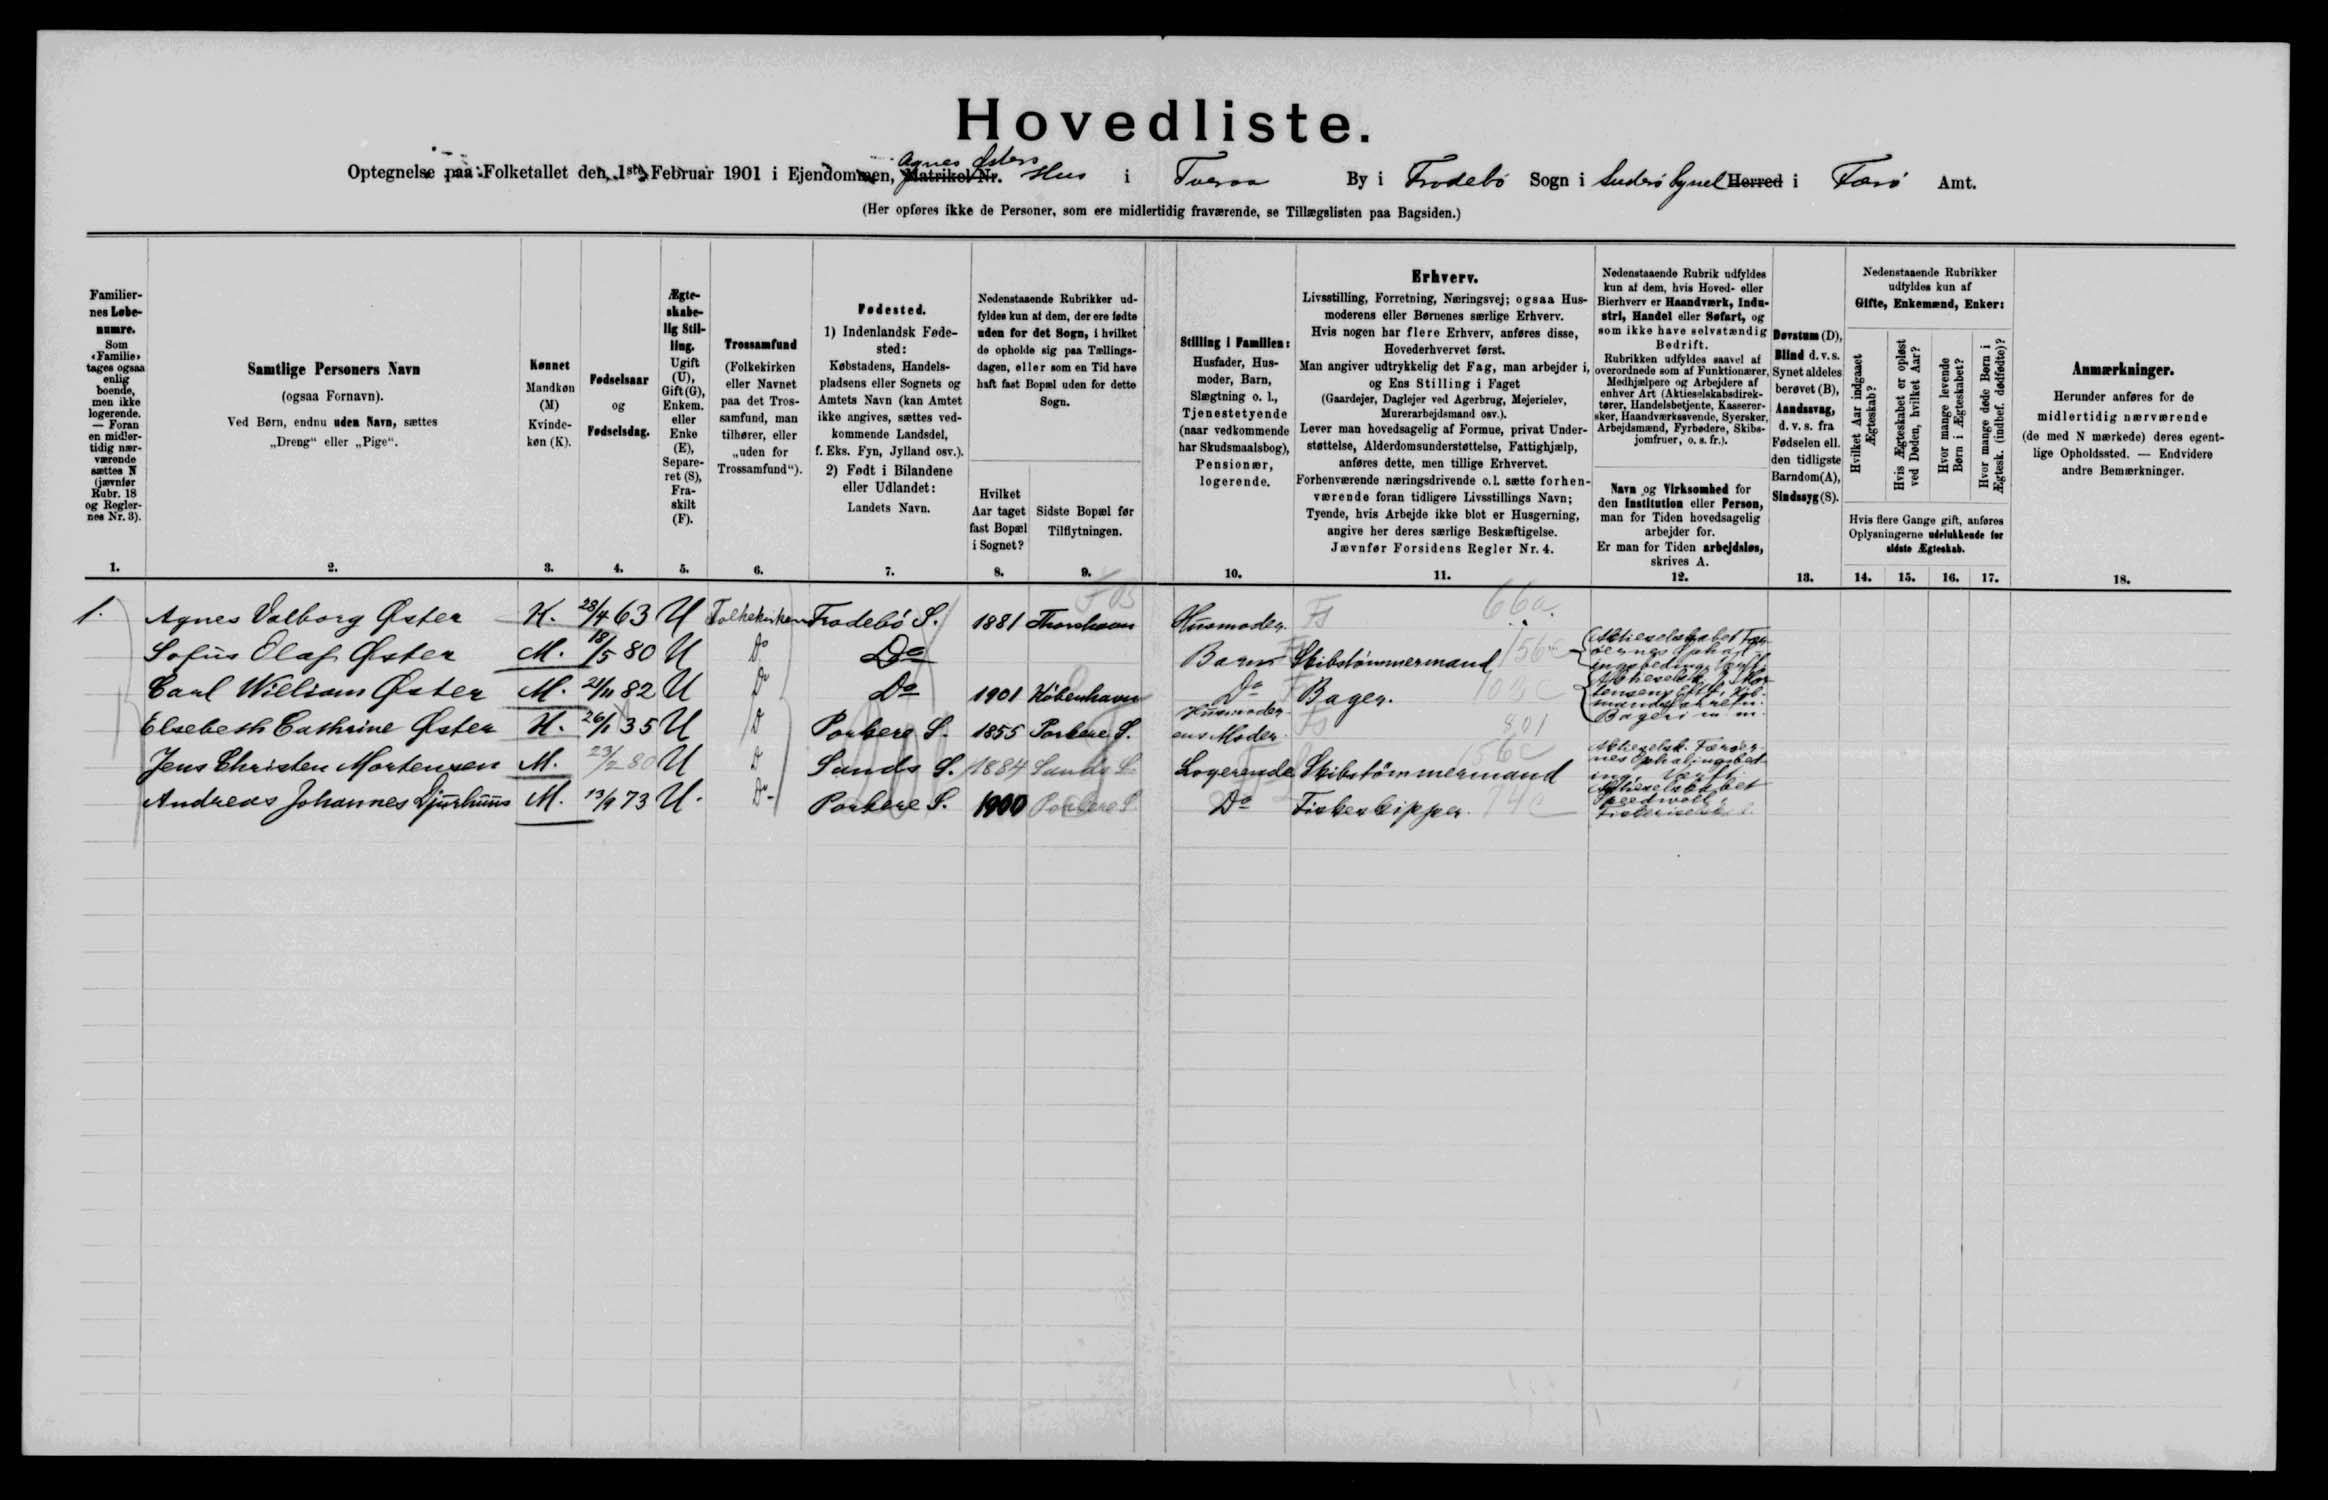 Hovedliste.
Optegnelse paa Folketallet den 1ste Februar 1901 i Ejendommen, Matrikel Nr. Agnes Østers Hus i Tveraa By i Frodebö Sogn i Suderö Sysel Herred i Færö Amt.
(Her opføres ikke de Personer, som ere midlertidig fraværende, se Tillægslisten paa Bagsiden.)
Familiernes Løbenumre.
Som «Familie» tages ogsaa enlig boende, men ikke logerende. — Foran en midlertidig nærværende sættes N (jævnfør Rubr. 18 og Reglernes Nr. 3).
1.
Samtlige Personers Navn
(ogsaa Fornavn).
Ved Børn, endnu uden Navn, sættes
„Dreng“ eller „Pige“.
2.
Kønnet
Mandkøn
(M)
Kvinde-
køn (K).
3.
Fødselsaar
og
Fødselsdag.
4.
Ægte-
skabe-
lig Stil-
ling.
Ugift
(U),
Gift (G),
Enkem.
eller
Enke
(E),
Separe-
ret (S),
Fra-
skilt
(F).
5.
Trossamfund
(Folkekirken
eller Navnet
paa det Tros-
samfund, man
tilhører, eller
„uden for
Trossamfund“).
6.
Fødested.
1) Indenlandsk Føde-
sted:
Købstadens, Handels-
pladsens eller Sognets og
Amtets Navn (kan Amtet
ikke angives, sættes ved-
kommende Landsdel,
f. Eks. Fyn, Jylland osv.).
2) Født i Bilandene
eller Udlandet:
Landets Navn.
7.
Nedenstaaende Rubrikker ud-
fyldes kun af dem, der ere fødte
uden for det Sogn, i hvilket
de opholde sig paa Tællings-
dagen, eller som en Tid have
haft fast Bopæl uden for dette
Sogn.
Hvilket
Aar taget
fast Bopæl
i Sognet?
8.
Sidste Bopæl før
Tilflytningen.
9.
Stilling i Familien:
Husfader, Hus-
moder, Barn,
Slægtning o. l.,
Tjenestetyende
(naar vedkommende
har Skudsmaalsbog),
Pensionær,
logerende.
10.
Erhverv.
Livsstilling, Forretning, Næringsvej; ogsaa Hus-
moderens eller Børnenes særlige Erhverv.
Hvis nogen har flere Erhverv, anføres disse,
Hovederhvervet først.
Man angiver udtrykkelig det Fag, man arbejder i,
og Ens Stilling i Faget
(Gaardejer, Daglejer ved Agerbrug, Mejerielev,
Murerarbejdsmand osv.).
Lever man hovedsagelig af Formue, privat Under-
støttelse, Alderdomsunderstøttelse, Fattighjælp,
anføres dette, men tillige Erhvervet.
Forhenværende næringsdrivende o.l. sætte forhen-
værende foran tidligere Livsstillings Navn;
Tyende, hvis Arbejde ikke blot er Husgerning,
angive her deres særlige Beskæftigelse.
Jævnfør Forsidens Regler Nr. 4.
11.
Nedenstaaende Rubrik udfyldes
kun af dem, hvis Hoved- eller
Bierhverv er Haandværk, Indu-
stri, Handel eller Søfart, og
som ikke have selvstændig
Bedrift.
Rubrikken udfyldes saavel af
overordnede som af Funktionærer,
Medhjælpere og Arbejdere af
enhver Art (Aktieselskabsdirek-
tører, Handelsbetjente, Kasserer-
sker, Haandværkssvende, Syersker,
Arbejdsmænd, Fyrbødere, Skibs-
jomfruer, o. s. fr.).
Navn og Virksomhed for
den Institution eller Person,
man for Tiden hovedsagelig
arbejder for.
Er man for Tiden arbejdsløs,
skrives A.
12.
Døvstum (D),
Blind d. v. s.
Synet aldeles
berøvet (B),
Aandssvag,
d. v. s. fra
Fødselen ell.
den tidligste
Barndom (A),
Sindssyg (S).
13.
Nedenstaaende Rubrikker
udfyldes kun af
Gifte, Enkemænd, Enker:
Hvilket Aar indgaaet Ægteskab?
Hvis Ægteskabet er opløst ved Døden, hvilket Aar?
Hvor mange levende Børn i Ægteskabet?
Hvor mange døde Børn i Ægtesk. (indbef. dødfødte)?
Hvis flere Gange gift, anføres
Oplysningerne udelukkende for
sidste Ægteskab.
14. 15. 16. 17.
Anmærkninger.
Herunder anføres for de
midlertidig nærværende
(de med N mærkede) deres egent-
lige Opholdssted. — Endvidere
andre Bemærkninger.
18.
1. Agnes Valborg Øster K. 28/4 63 U Folkekirken Frodebö S. 1881 Thorshavn Husmoder. 66a.
Sofus Olaf Øster M. 18/5 80 U Do Do Barn Skibstømmermand 156c Aktieselskabet Færöernes Ophalingsbedings Værft
Carl William Øster M. 21/11 82 U Do Do 1901 Köbenhavn Do Bager. Bageri m. m.
Elsebeth Cathrine Øster K. 26/1 35 U D Porkere S. 1855 Porkere S. Husmoderens Moder. 801
Jens Christen Mortensen M. 23/2 80 U D Sands S. 1884 Sands S. Logerende Skibstømmermand 156c Aktieselsk. Færöernes Ophalingsbeding, Værft
Andreas Johannes Djurhuus M. 13/9 73 U. Do Porkere S. 1900 Porkere S. Do Fiskeskipper. 74c Aktieselskabet